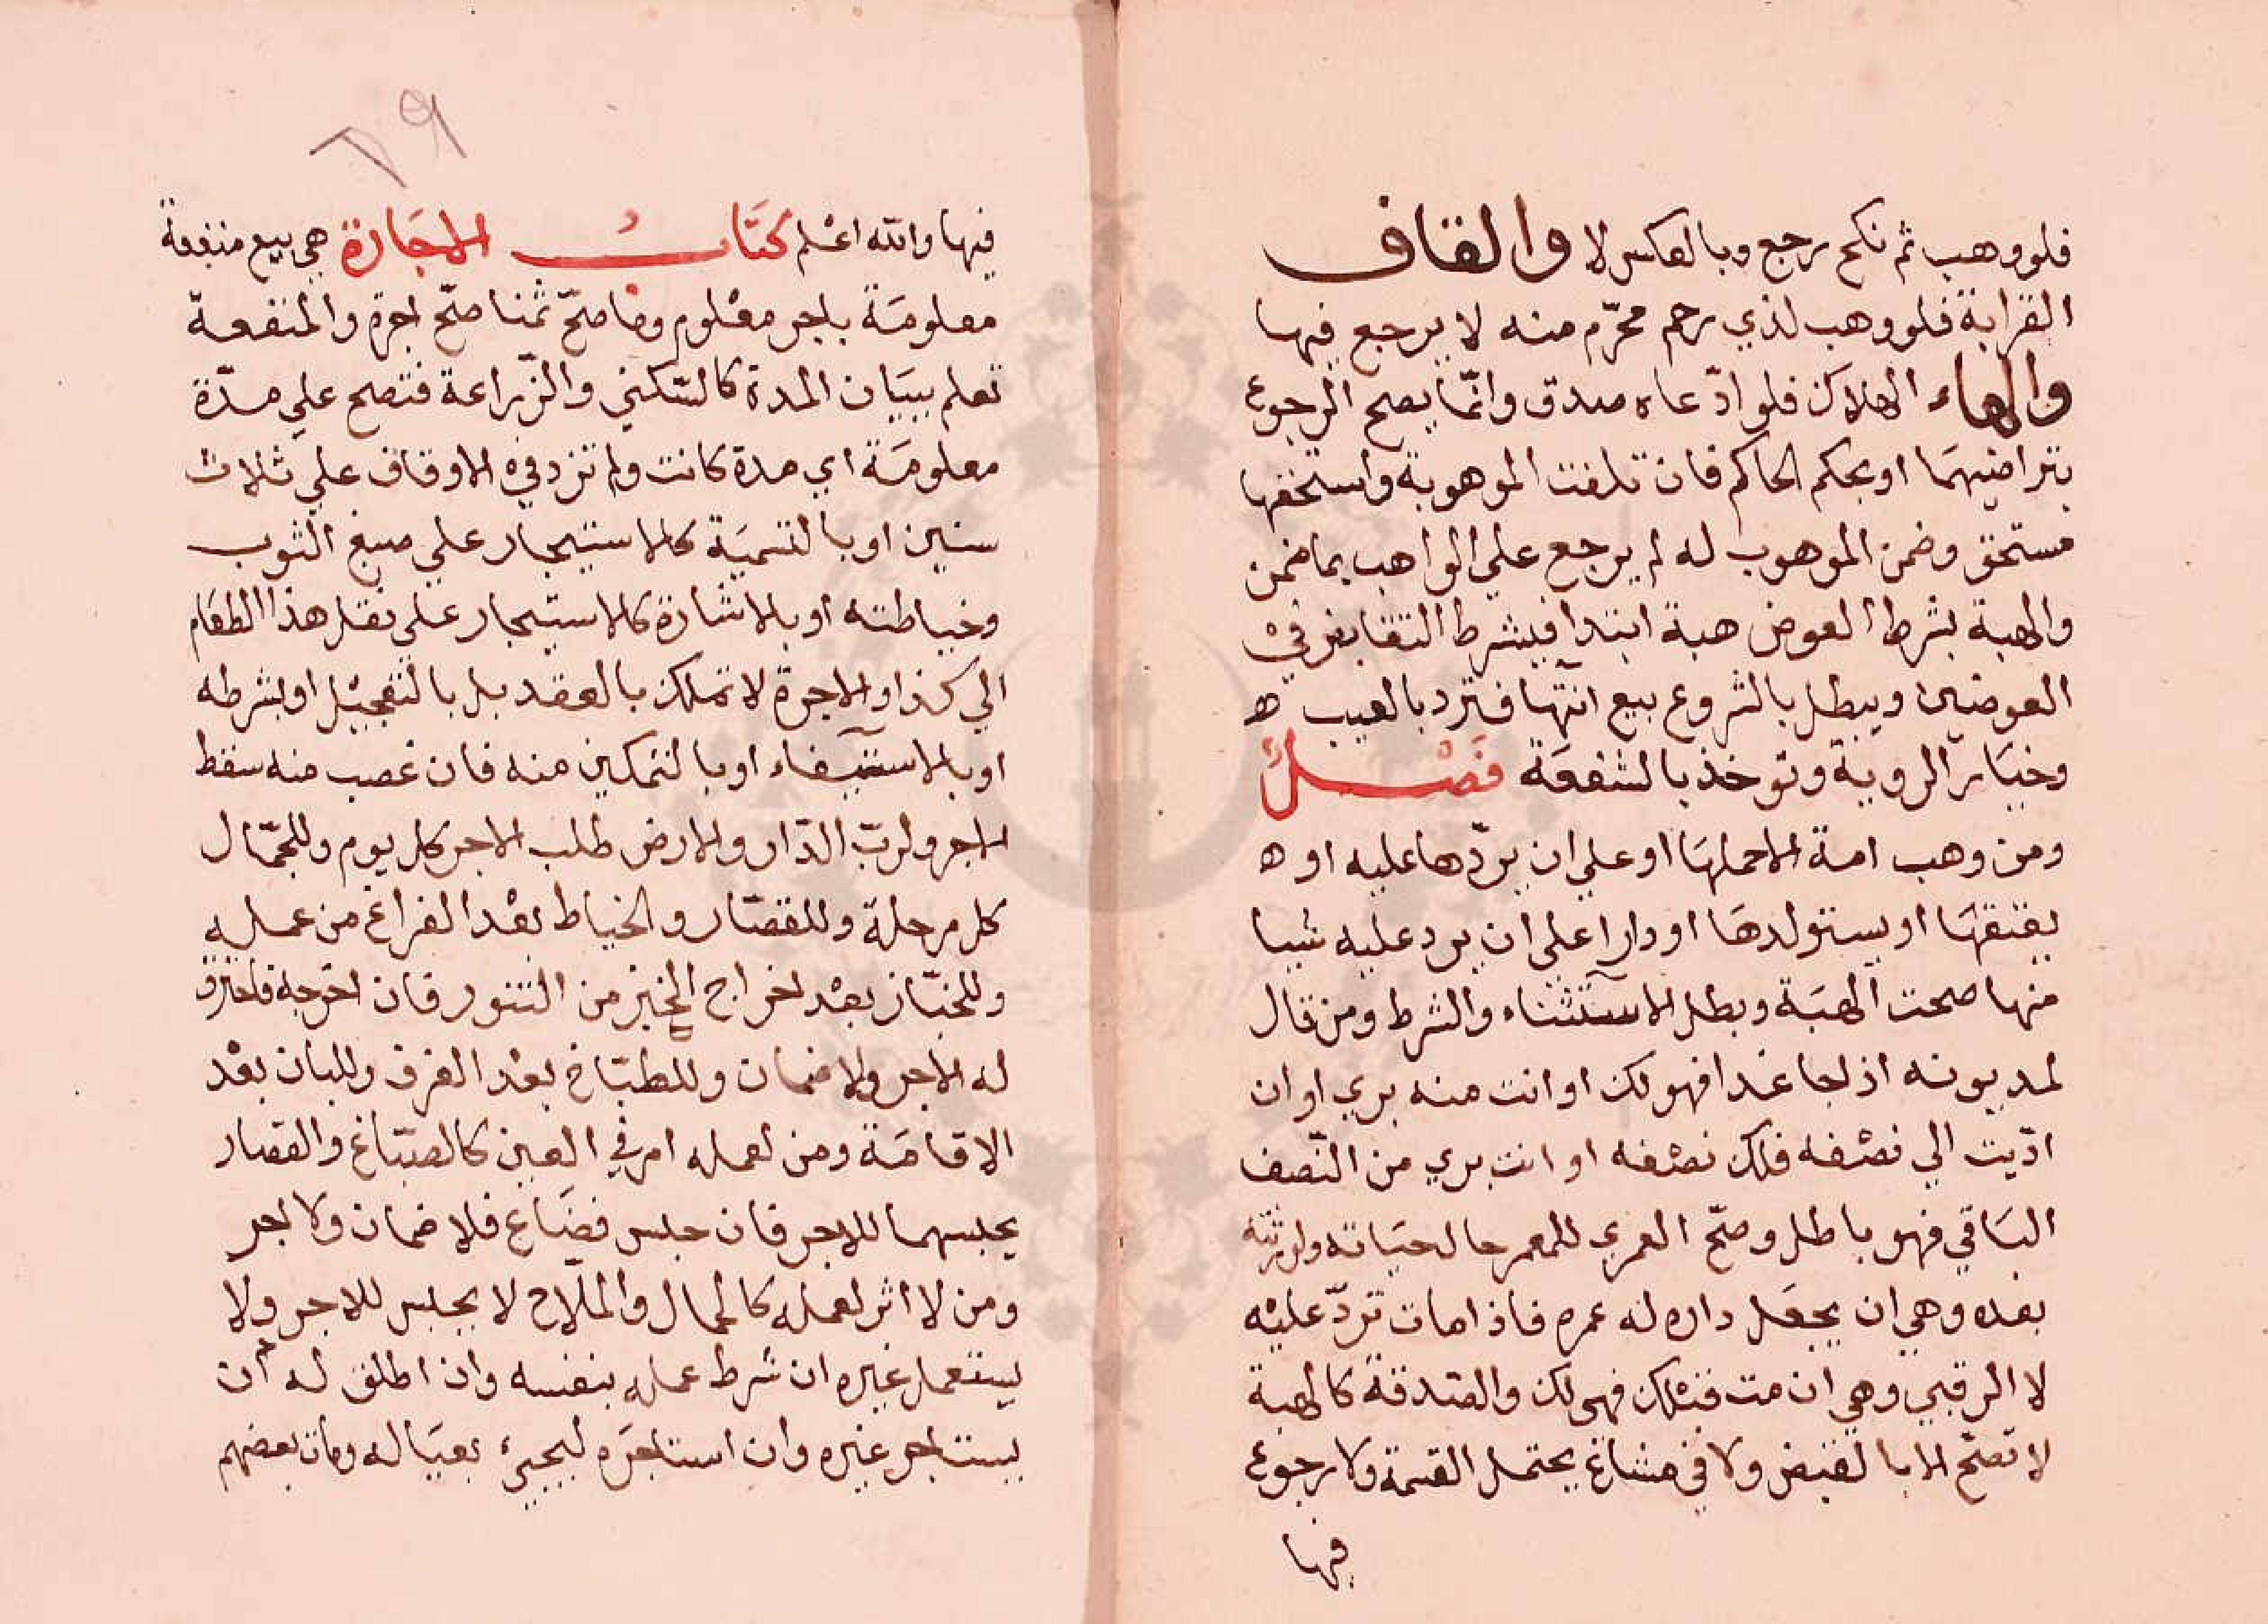 فلو وهب ثم نكح رجع وبالعكس لا والقاف
القرابة فلو وهب لذي رحم محرّم منه لا يرجع فيها
والهاء الهلاك فلو ادّعاه صدق وانّما يصح الرجوع
بتراضيهما او بحكم الحاكم فان تلفت الموهوبة واستحقها
مستحق وضمن الموهوب له لم يرجع علي الواهب بما ضمن
والهبة بشرط العوض هبة ابتدا فيشرط التقابض في
العوضين ويبطل بالشروع بيع انتها فترد بالعيب ه
وخيار الروية وتوخذ بالشفعة فَصْلٌ
ومن وهب امة الا حملها او علي ان يردّها عليه او ه
يعتقها او يستولدها او دارا علي ان يرد عليه شيا
منها صحت الهبة وبطل الاستثناء والشرط ومن قال
لمديونه اذا جا غدا فهو لك او انت منه بري او ان
ادّيت الي نصْفه فلك نصْفه او انت بري من النّصف
الباقي فهو باطل وصحّ العمري للمعمر حال حياته ولورثته
بعده وهي ان يجعل داره له عمره فاذا مات تردّ عليْه
لا الرقبي وهي ان مت قبْلك فهي لك والصّدقة كالهبة
لا تصحّ الا بالقبض ولا في مشاع يحتمل القسمة ولا رجوع
فيها
٧٩
فيها والله اعْلم كتابُ الاجارة هي بيع منفعة
معلومة باجر معْلوم وما صحّ ثمنا صحّ اجرة والمنفعة
تعلم ببيان المدة كالسّكني والزّراعة فتصح علي مدّة
معلومة اي مدة كانت ولم تزد في الاوقاف علي ثلاث
سنين او بالتسمية كالاستيجار علي صبغ الثوب
وخياطته او بالاشارة كالاستيجار علي نقل هذا الطعام
الي كذا والاجرة لا تملك بالعقد بل بالتعجيْل او بشرطه
او بالاستيفاء او بالتمكين منه فان غصب منه سقط
الاجر ولربّ الدّار والارض طلب الاجر كل يوم وللجمّال
كل مرحلة وللقصّار والخياط بعْد الفراغ من عمله
وللخبّاز بعْد اخراج الخبز من التنور فان اخرجه فاحترق
له الاجر ولا ضمان وللطبّاخ بعْد الغرف وللبان بعْد
الاقامة ومن لعمله اثر في العين كالصبّاغ والقصار
يحبسهما للاجر فان حبس فضاع فلا ضمان ولا اجر
ومن لا اثر لعمله كالحمال والملّاح لا يحبس للاجر ولا
يستعمل غيره ان شرط عمله بنفسه وان اطلق له ان
يستاجر غيره وان استاجره ليجيء بعياله ومات بعضهم